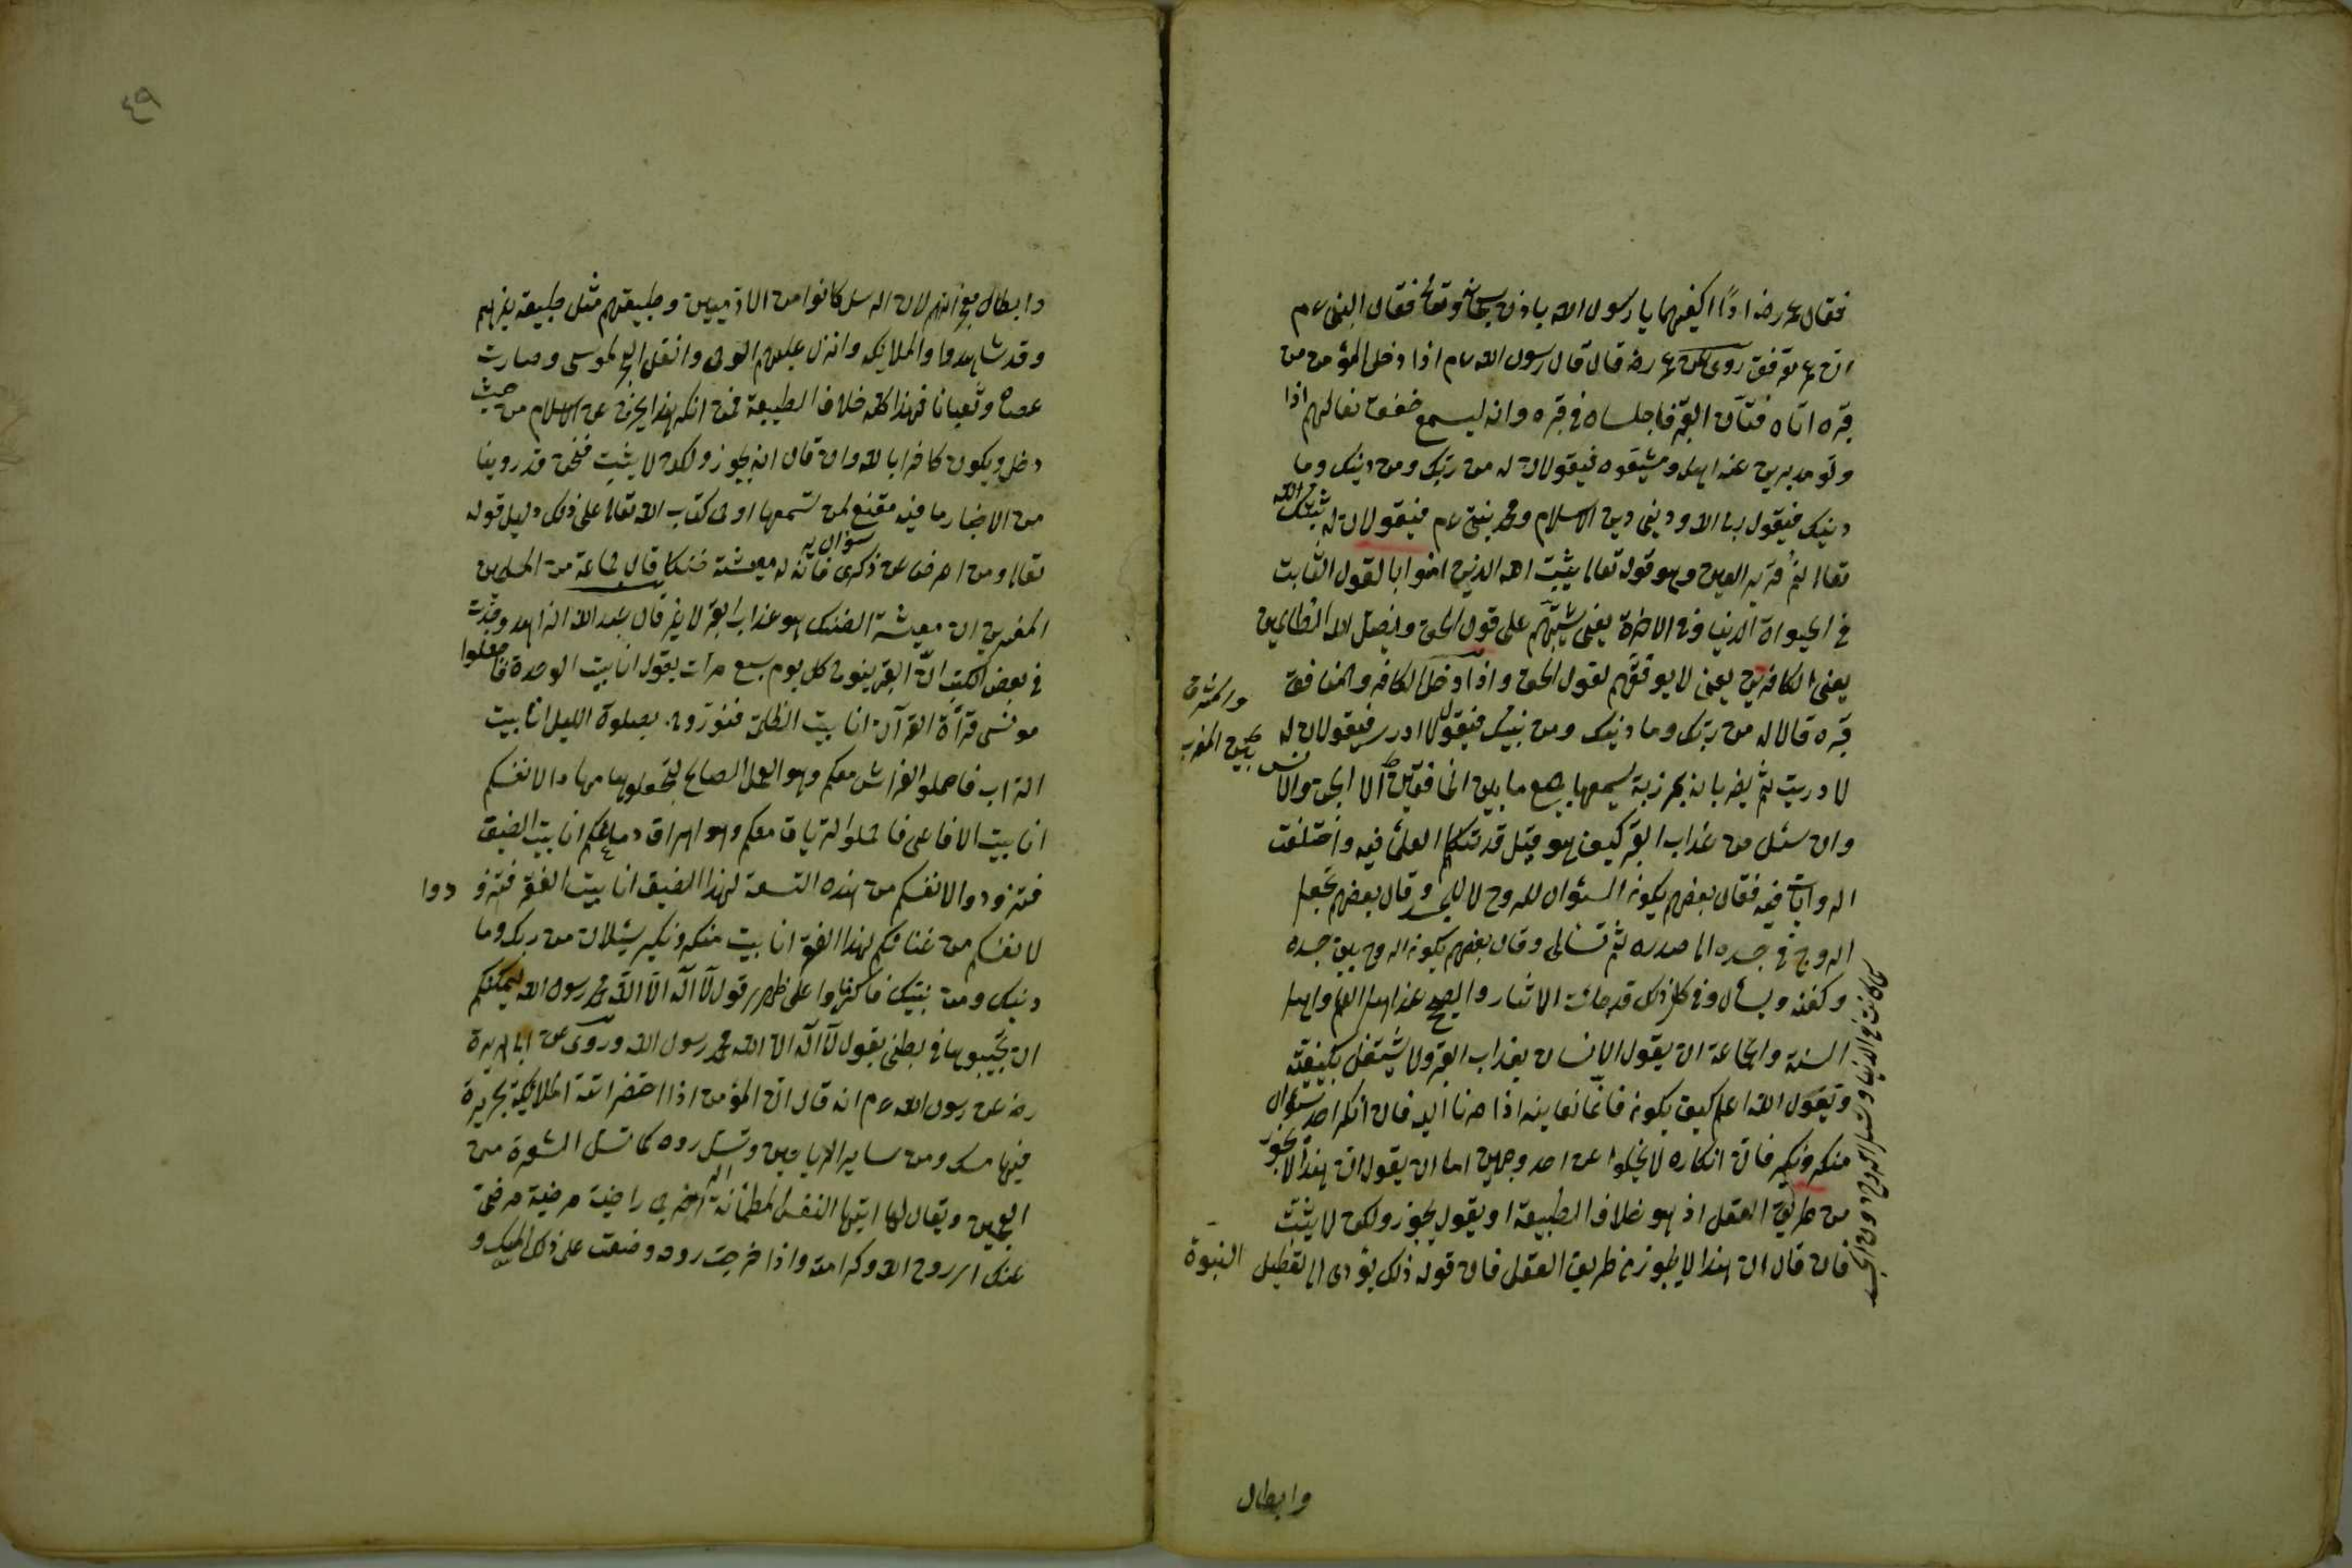 فقال عمر رضه اذًا اكفيهما يا رسول الله باذن سبحانه وتعالى فقال النبى عم
ان عمر موفق روى عن عمر رضه قال قال رسول الله عم اذا دخل المؤمن من
قبره اتاه فتان القبر فاجلساه فى قبره وانه ليسمع خفق نعالهم اذا
ولو مدبرين عنه اهله ومشيقوه فيقولان له من ربك ومن دينك وما
دينك فيقول ربى الله ودينى دين الاسلام ومحمد نبى عم فيقولان له ثبتك الله
تعالى نم قرير العين وهو قوله تعالى يثبت الله الذين امنوا بالقول الثابت
فى الحيواة الدنيا وفى الاخرة يعنى يثبتهم على قول الحق ويضل الله الظالمين
يعنى الكافرين يعنى لا يوفقهم لقول الحق واذا دخل الكافر والمنافق
قبره قالا له من ربك وما دينك ومن نبيك فيقول لا ادرى فيقولان له
لا دريت ثم يضربانه بمرزبة يسمعها جميع ما بين الخافقين الا الجن والانس
والمشرق
بين المغرب
وان سئل من عذاب القبر كيف هو قيل قد تكلم العلماء فيه واختلفت
الروايات فيه فقال بعضهم يكون السؤال للروح لا للجسد وقال بعضهم تجعل
الروح فى جسده الى صدره ثم تسئل وقال بعضهم يكون الروح بين جسده
وكفنه ويسئل وفى كل ذلك قد جائت الاثار والصحيح عند اهل العلم واهل
السنة والجماعة ان يقول الانسان بعذاب القبر ولا يشتغل بكيفيته
ويقول الله اعلم كيف يكون فانما نعاينه اذا صرنا اليه فان انكر احد سؤال
منكر ونكير فان انكاره لا يخلوا عن احد وجهين اما ان يقول ان هذا لا يجوز
من طريق العقل اذ هو خلاف الطبيعة او يقول يجوز ولكن لا يثبت
فان قال ان هذا لا يجوز من طريق العقل فان قوله ذلك يؤدى الى تعطيل النبوة
كما كانت فى الدنيا وتسئل الروح دون الجسد
وابطال
٤٩
وابطال معجزاتهم لان الرسل كانوا من الادميين وطبيعتهم مثل طبيعة غيرهم
وقد شاهدوا والملائكة وانزل عليهم الوحى وانفلق البحر لموسى وصارت
عصاه ثعبانا فهذا كله خلاف الطبيعة فمن انكر هذا يخرج عن الاسلام من حيث
دخل ويكون كافرا بالله وان قال انه يجوز ولكن لا يثبت فنحن قد روينا
من الاخبار ما فيه مقنع لمن تسمعها او فى كتاب الله تعالى على ذلك دليل قوله
تعالى ومن اعرض عن ذكرى فان له معيشة ضنكا قال جماعة من المسلمين
المفسرين ان معيشة الضنك هو عذاب القبر لا غير قال عبد الله الزاهد وجدت
فى بعض الكتب ان القبر ينوح كل يوم سبع مرات يقول انا بيت الوحدة فاجعلوا
مونسى قرأة القرآن انا بيت الظلمة فنوروه بصلوة الليل انا بيت
التراب فاحملوا الفراش معكم وهو العمل الصالح تجعلوها مهادا لانفسكم
انا بيت الافاعى فاحملوا الترياق معكم وهو اهراق دماعكم انا بيت الضيق
فتزودوا لانفسكم من هذه التسعة لهذا الضيق انا بيت الفقر فتزودوا
لانفسكم من غنائكم لهذا الفقر انا بيت منكر ونكير يسئلان من ربك وما
دينك ومن نبيك فاكثروا على ظهرى قول لا اله الا الله محمد رسول الله ليمكنكم
ان تجيبوها فى بطنى بقول لا اله الا الله محمد رسول الله وروى عن ابى هريرة
رضه عن رسول الله عم انه قال ان المؤمن اذا احتضر اتته الملائكة بحريرة
فيها مسك ومن ساير الرياحين وتسل روحه كما تسل الشعرة من
العجين ويقال لها ايتها النفس المطمئنة اخرجى راضية مرضية مرضى
عنك الى روح الله وكرامته واذا خرجت روحه وضعت على ذلك المسك و